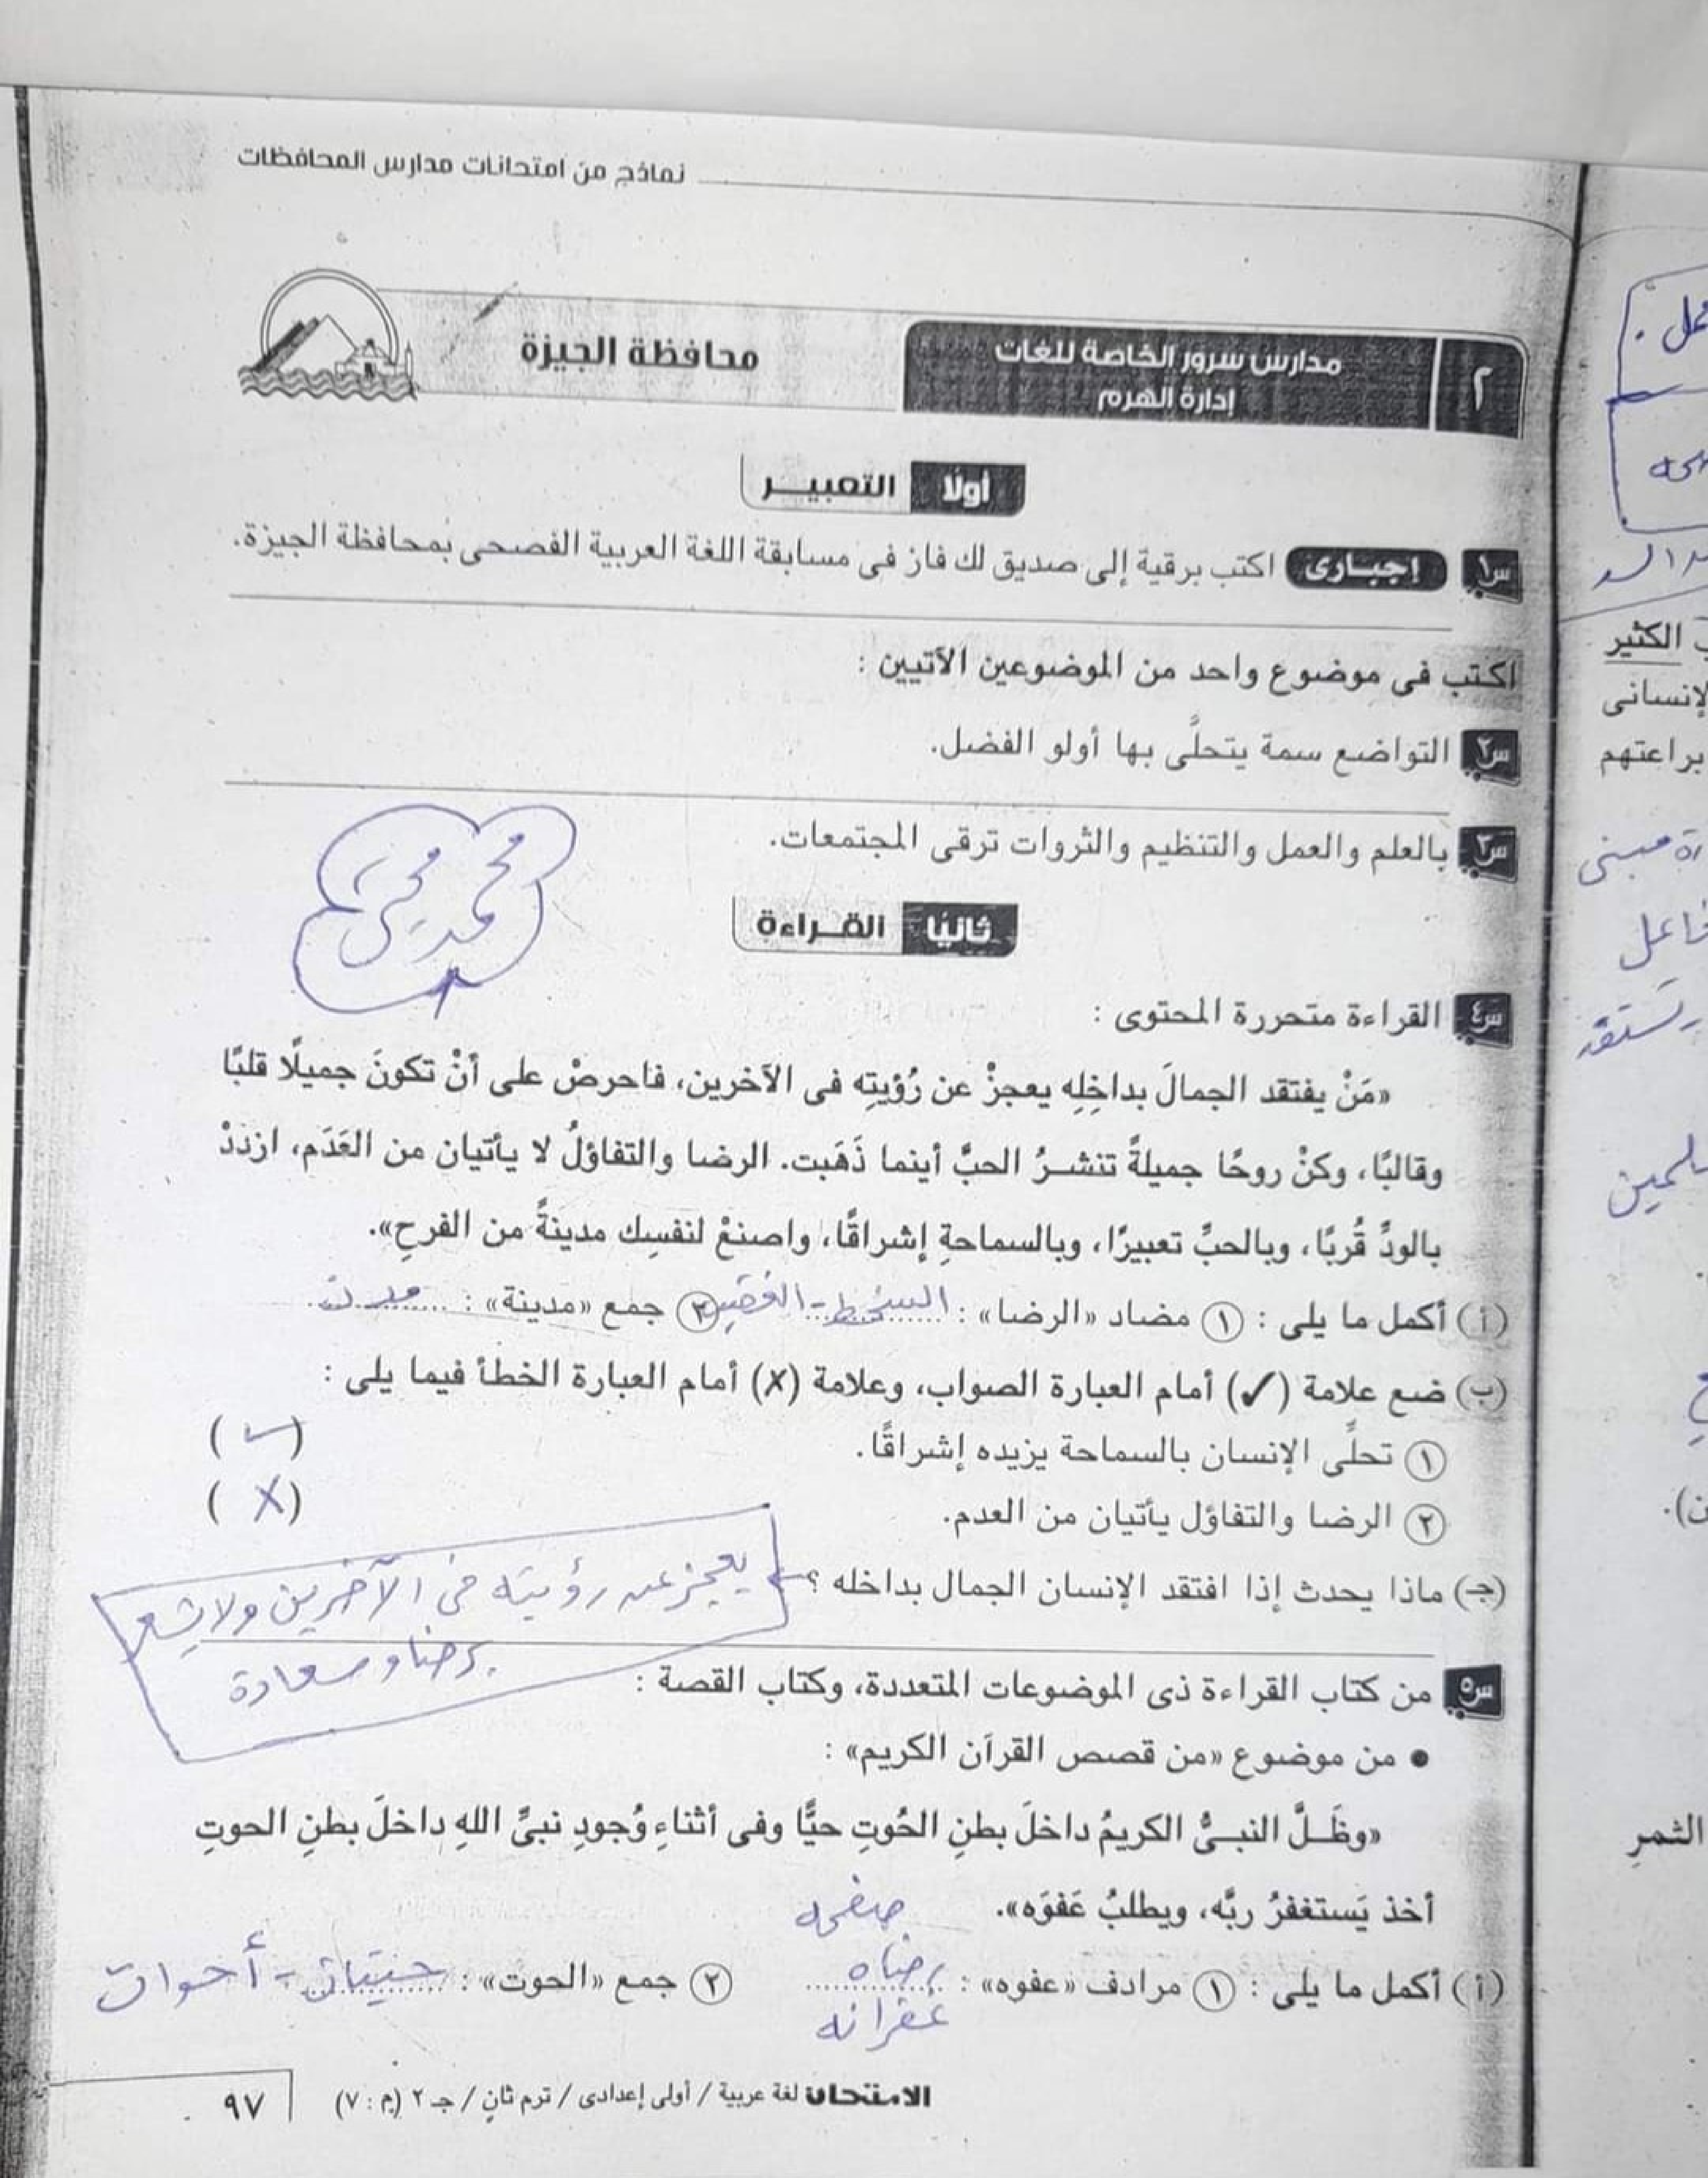 نماذج من امتحانات مدارس المحافظات
٢ مدارس سرور الخاصة للغات محافظة الجيزة
إدارة الهرم
أولًا التعبيــر
س١ إجبـارى اكتب برقية إلى صديق لك فاز فى مسابقة اللغة العربية الفصحى بمحافظة الجيزة.
اكتب فى موضوع واحد من الموضوعين الآتيين :
س٢ التواضع سمة يتحلَّى بها أولو الفضل.
س٣ بالعلم والعمل والتنظيم والثروات ترقى المجتمعات.
محمد محيى
ثانيًا القـراءة
س٤ القراءة متحررة المحتوى :
«مَنْ يفتقد الجمالَ بداخِلِه يعجزْ عن رُؤيتِه فى الآخرين، فاحرصْ على أنْ تكونَ جميلًا قلبًا
وقالبًا، وكنْ روحًا جميلةً تنشــرُ الحبَّ أينما ذَهَبت. الرضا والتفاؤلُ لا يأتيان من العَدَم، ازددْ
بالودِّ قُربًا، وبالحبِّ تعبيرًا، وبالسماحةِ إشراقًا، واصنعْ لنفسِك مدينةً من الفرحِ».
(أ) أكمل ما يلى : ① مضاد «الرضا» : السخط - الغضب ② جمع «مدينة» : مدن
(ب) ضع علامة (✓) أمام العبارة الصواب، وعلامة (✗) أمام العبارة الخطأ فيما يلى :
① تحلَّى الإنسان بالسماحة يزيده إشراقًا. (✓)
② الرضا والتفاؤل يأتيان من العدم. (✗)
(جـ) ماذا يحدث إذا افتقد الإنسان الجمال بداخله ؟ يعجز عن رؤيته فى الآخرين ولا يشعر
برضا وسعادة
س٥ من كتاب القراءة ذى الموضوعات المتعددة، وكتاب القصة :
● من موضوع «من قصص القرآن الكريم» :
«وظَــلَّ النبــىُّ الكريمُ داخلَ بطنِ الحُوتِ حيًّا وفى أثناءِ وُجودِ نبىِّ اللهِ داخلَ بطنِ الحوتِ
أخذ يَستغفرُ ربَّه، ويطلبُ عَفوَه».
صفحه
(أ) أكمل ما يلى : ① مرادف «عفوه» : رضاه ② جمع «الحوت» : حيتان - أحوات
غفرانه
الامتحان لغة عربية / أولى إعدادى / ترم ثانٍ / جـ ٢ (م : ٧) ٩٧
الكثير
براعتهم
مبنى
فاعل
الثمرِ